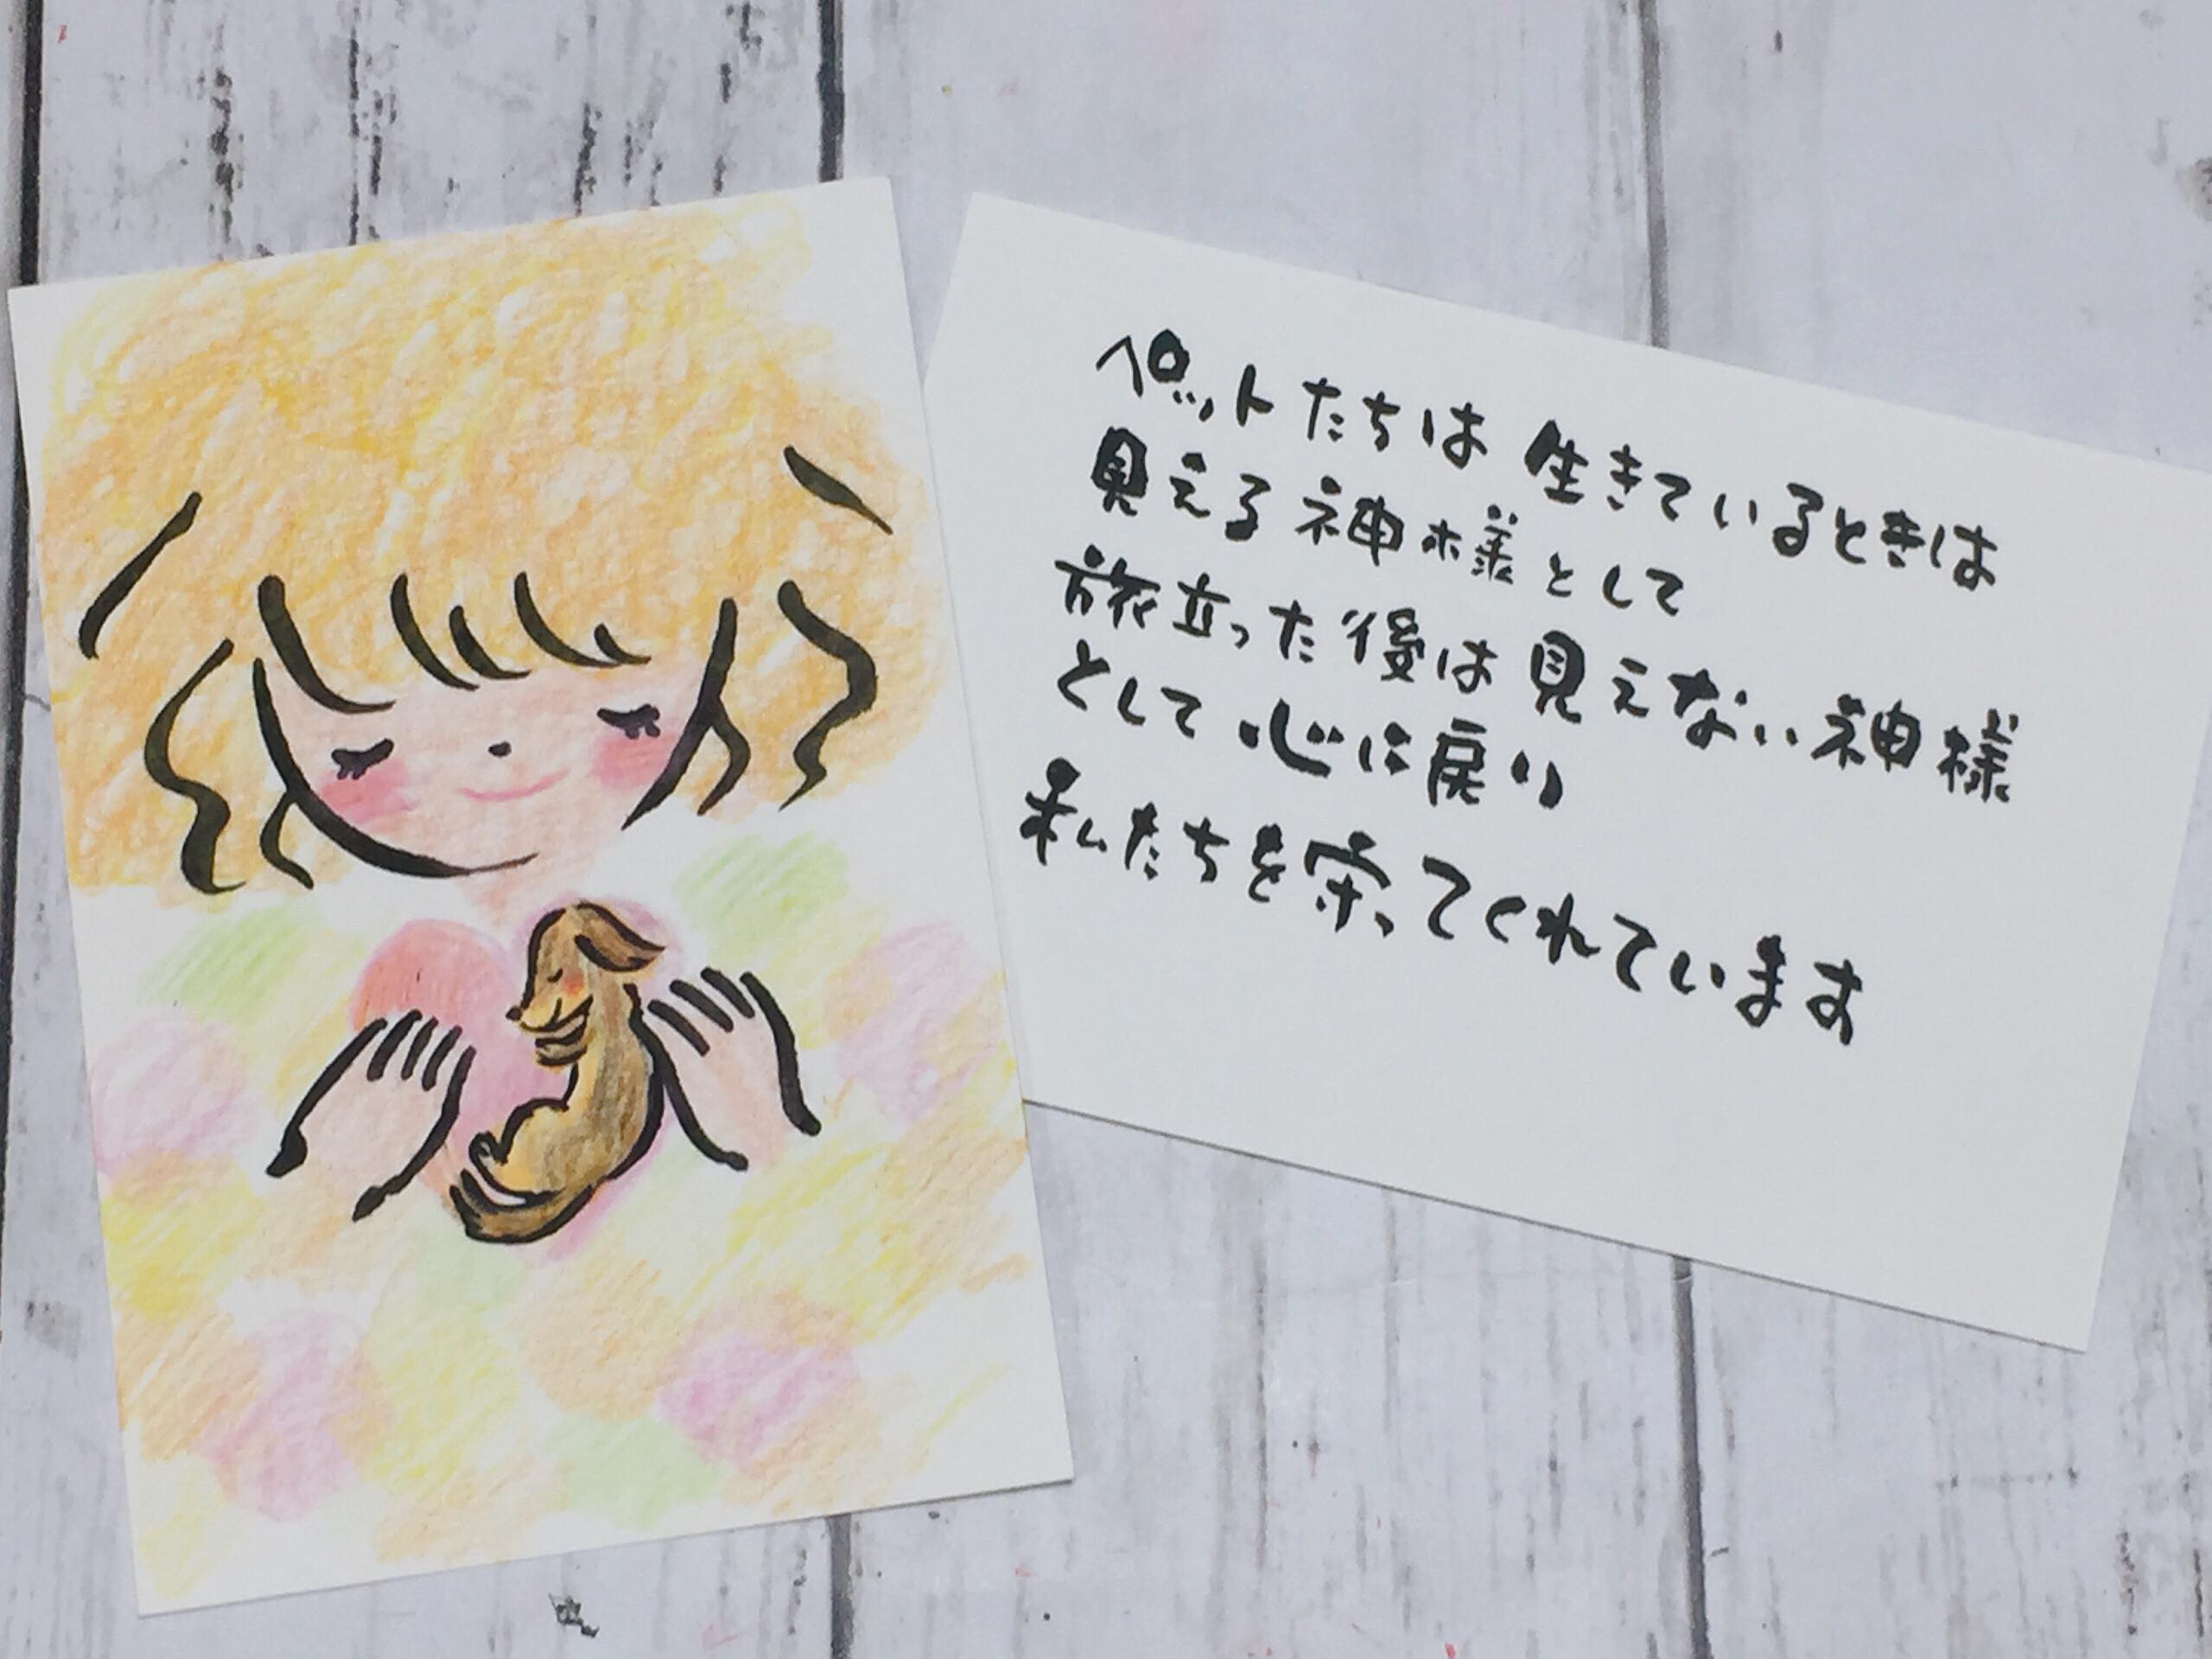 ペットたちは生きているときは
見える神様として
旅立った後は見えない神様
として心に戻り
私たちを守ってくれています